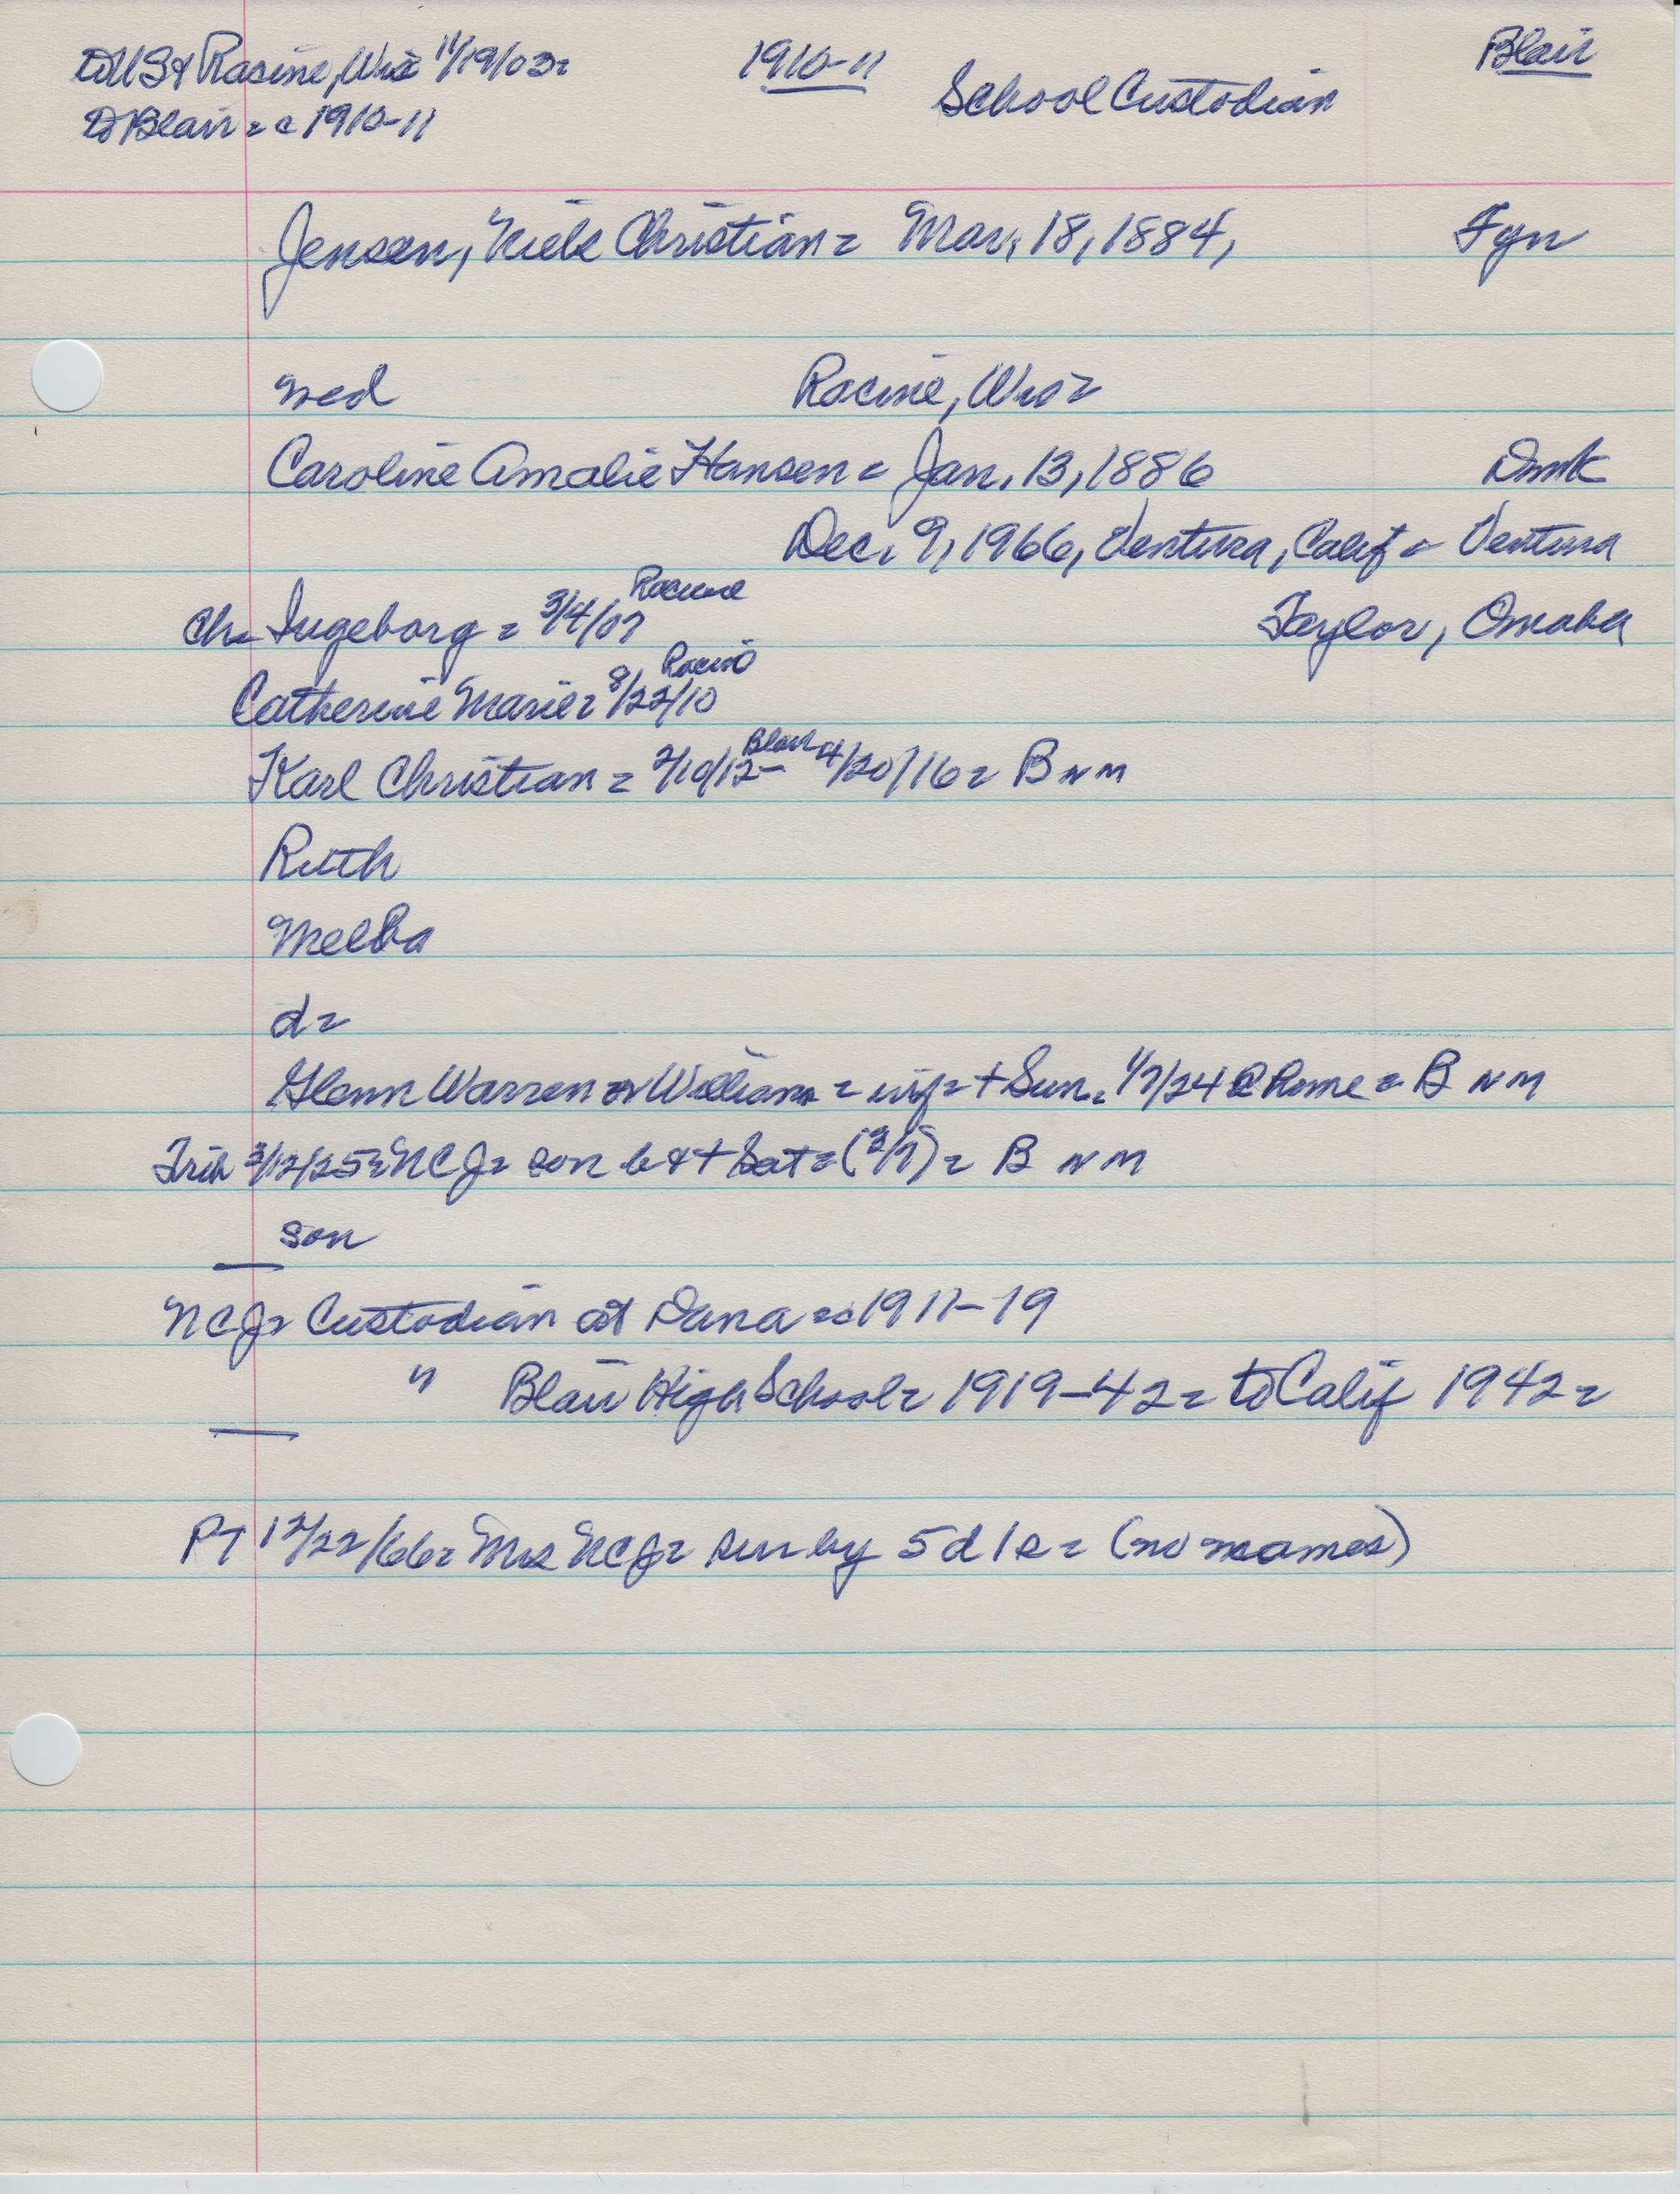 to US & Racine, Wis 11/19/03= 1910-11 Blair
to Blair = c 1910-11 School Custodian
Jensen, Niels Christian = Mar. 18, 1884, Fyn
wed Racine, Wis =
Caroline Amalie Hansen = Jan. 13, 1886 Dmk
Dec. 9, 1966, Ventura, Calif = Ventura
Ch= Ingeborg = 3/4/07 Racine Taylor, Omaha
Catherine Marie = 8/22/10 Racine
Karl Christian = 2/10/12 Blair - 4/20/16 = B n m
Ruth
Melba
d =
Glenn Warren or William = inf = + Sun. 1/7/24 @ home = B n m
Trib 3/12/25 = NCJ= son b & + Sat = (3/7) = B n m
son
NCJ= Custodian at Dana = 1911-19
" Blair High School = 1919-42 = to Calif 1942 =
PT 12/22/66 = Mrs NCJ= sur by 5 d 1 s = (no names)